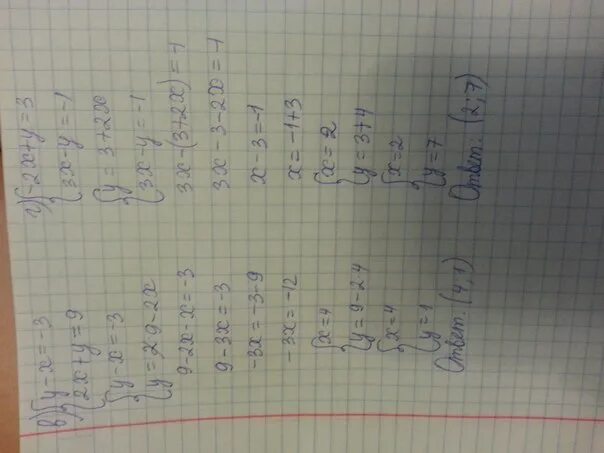 в) { y - x = -3
2x + y = 9
{ y - x = -3
y = 9 - 2x
9 - 2x - x = -3
9 - 3x = -3
-3x = -3 - 9
-3x = -12
{ x = 4
y = 9 - 2·4
{ x = 4
y = 1
Ответ. (4; 1)
г) { -2x + y = 3
3x - y = -1
{ y = 3 + 2x
3x - y = -1
3x - (3 + 2x) = -1
3x - 3 - 2x = -1
x - 3 = -1
x = -1 + 3
{ x = 2
y = 3 + 4
{ x = 2
y = 7
Ответ. (2; 7)